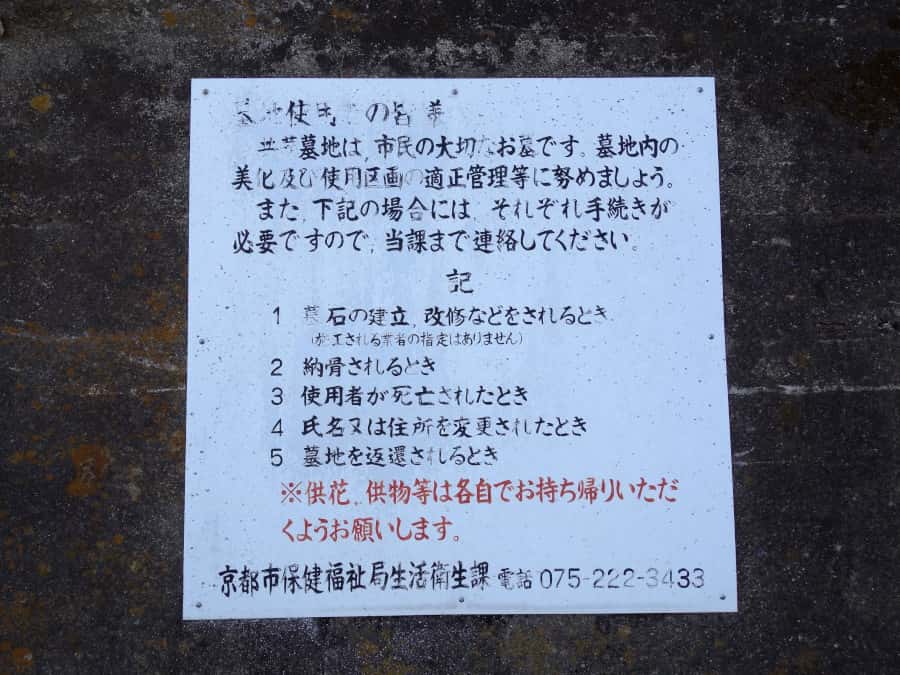 墓地使用者の皆様
墓地は、市民の大切なお墓です。墓地内の
美化及び使用区画の適正管理等に努めましょう。
また、下記の場合には、それぞれ手続きが
必要ですので、当課まで連絡してください。
記
1 墓石の建立、改修などをされるとき
(施工される業者の指定はありません)
2 納骨されるとき
3 使用者が死亡されたとき
4 氏名又は住所を変更されたとき
5 墓地を返還されるとき
※供花、供物等は各自でお持ち帰りいただ
くようお願いします。
京都市保健福祉局生活衛生課 電話 075-222-3433